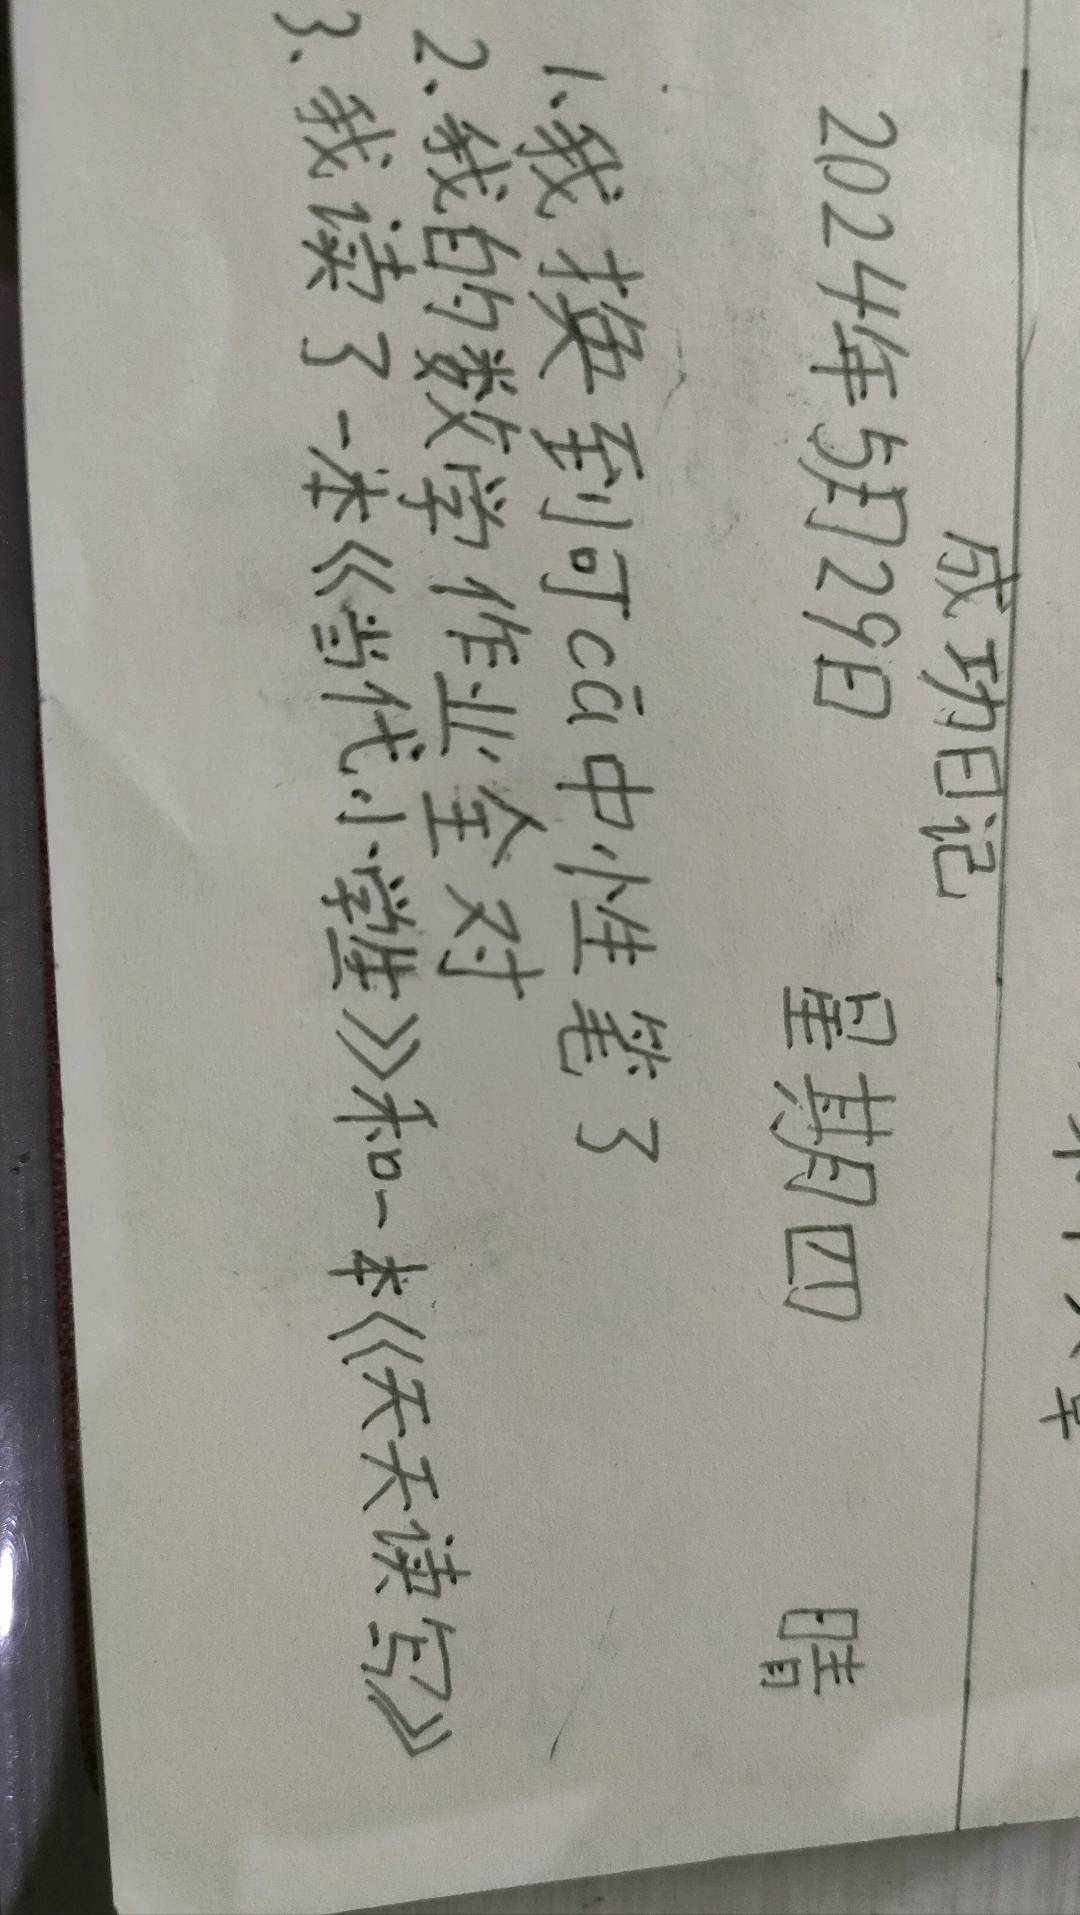 成功日记
2024年5月29日 星期四 晴
1、我换到可cā中性笔了
2、我的数学作业全对
3、我读了一本《当代小学生》和一本《天天读写》